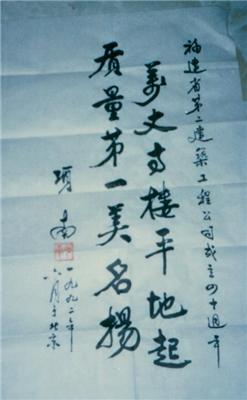 福建省第二建築工程公司成立四十週年
萬丈高樓平地起
质量第一美名揚
项南
一九九二年
六月于北京